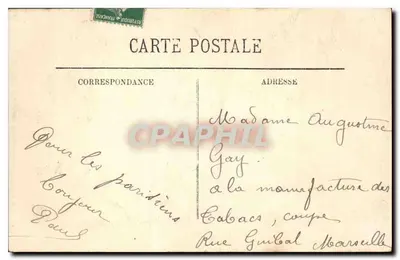 CARTE POSTALE
CORRESPONDANCE
ADRESSE
Pour les parisiens
bonjour
Paul
Madame Augustine
Gay
a la manufacture des
Tabacs, coupe
Rue Guibal Marseille
CPAPHIL